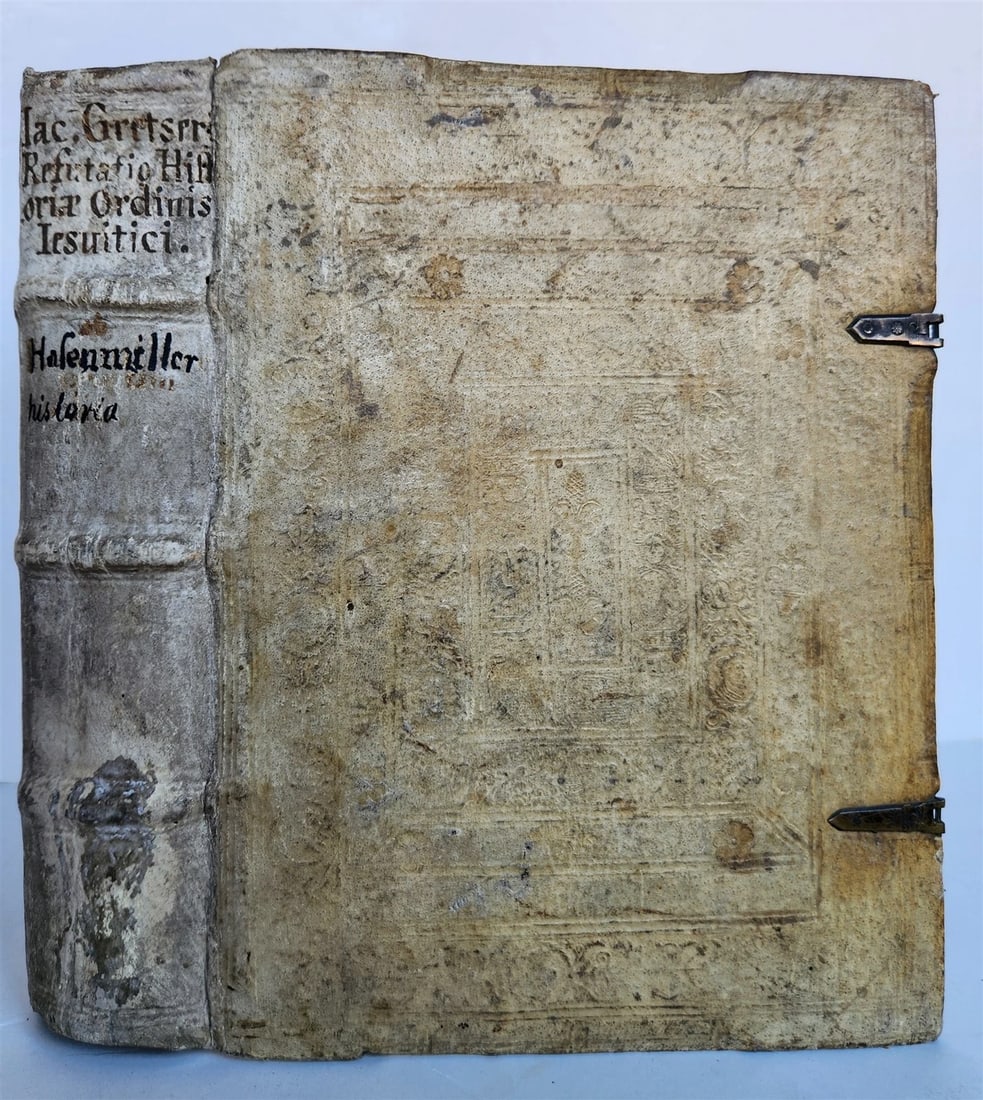 Iac. Gretser
Refutatio Hist
oriæ Ordinis
Iesuitici.
Hasenmiller
historia